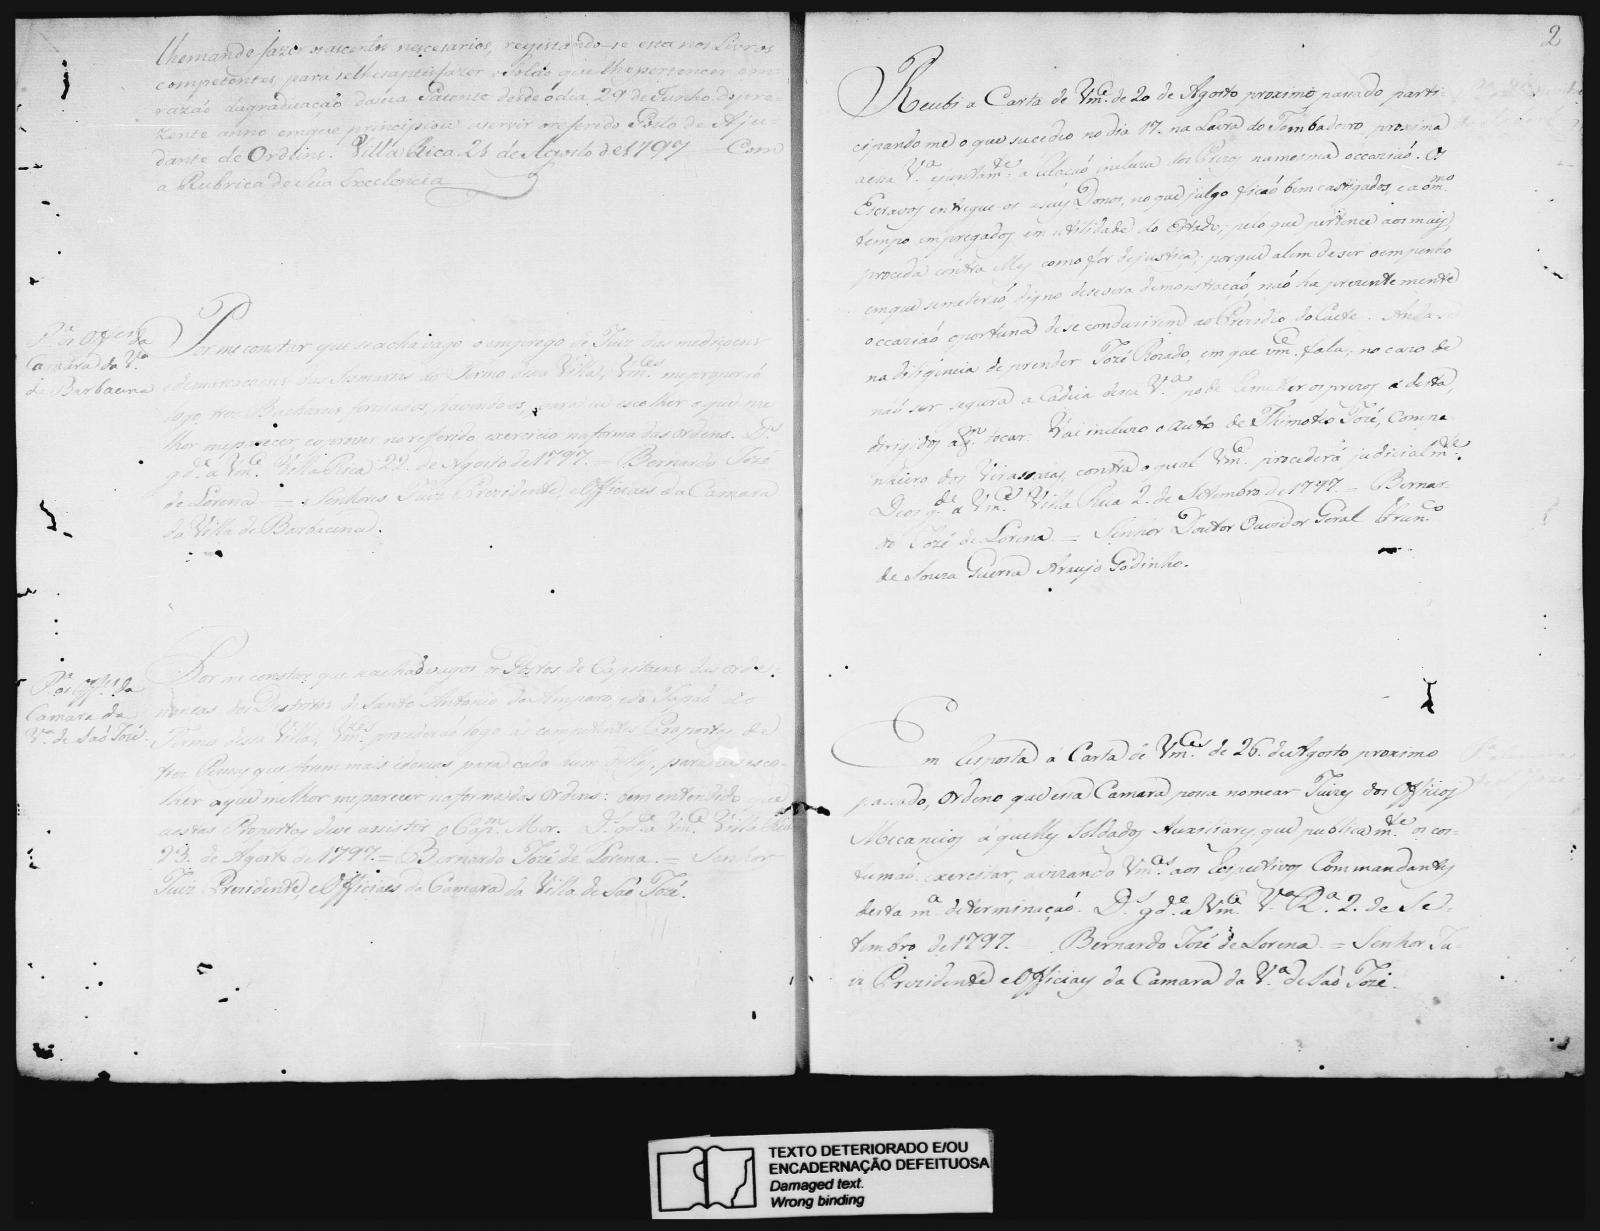 lhemande fazer os ascentos necesarios, registando-se esta nos Livros
competentes, para selhe satisfazer o Soldo que lhe pertencer em
razaõ dagraduaçaõ dasua Patente desde o dia 29 de Junho do pre-
zente anno emque principiou aservir oreferido Posto de Aju-
dante de Ordens. Villa Rica 21 de Agosto de 1797 = Com
a Rubrica de Sua Excelencia
P.ª os Off.es da
Camara da V.ª
de Barbacena
Por me constar que seacha vago o emprego de Juiz das mediçoens
e demarcacoens das Sesmarias do Termo desa Villa, Vm.ces me proporaõ
logo tres Bachareis formados, havendo os, para eu escolher o que me
lhor me parecer no referido exercicio na forma das ordens. D.s
g.de a Vm.ces Villa Rica 22 de Agosto de 1797 = Bernardo Jozé
de Lorena = Senhores Juiz Prezidente, e Officiaes da Camara
da Villa de Barbacena.
P.ª os Off.es da
Camara da
V.ª de Saõ José.
Por me constar que seachaõ vagos os Postos de Capitaens das Orde-
nanças dos Destritos de Santo Antonio do Amparo, e do Japaõ do
Termo desta Villa, Vm.ces procederaõ logo as competentes Propostas de
tres Pessoas que forem mais idoneas para cada hum delles, para eu esco-
lher aque melhor me parecer na forma das Ordens: bem entendido que
aestas Propostas deve assistir o Cap.m Mor. D.s g.de a Vm.ces Villa Rica
23 de Agosto de 1797 = Bernardo Jozé de Lorena = Senhor
Juiz Prezidente, e Officiaes da Camara da Villa de Saõ José.
2
Recebi a Carta de Vm.ce de 20 de Agosto proximo passado parti-
cipando me o que sucedeo no dia 17. na Lavra do Tombadoiro proxima
aessa V.ª, ejuntam.te a Relaçaõ incluza dos Prezos na mesma occaziaõ. Os
Escravos entregue-os aseus Donos, no que julgo ficaõ bem castigados, e ao m.mo
tempo empregados em utilidade do Estado; pelo que pertence aos mais,
proceda contra elles como for de justiça; porque alem de ser o empenho
em que se meteraõ, digno de severa demonstraçaõ, naõ ha prezentemente
occaziaõ oportuna de se conduzirem ao Prezidio do Cuieté. Anda se
na deligencia de prender Jozé Rosado, em que Vm.ce fala; no cazo de
naõ ser segura a Cadeia dessa V.ª pode remeter os prezos a desta,
dirigidos aq.m tocar. Vai incluzo o auto de Thimotio Jozé, Compa-
nheiro dos Virassaias, contra o qual Vm.ce procederá judicialm.te.
Deos g.de a Vm.ce Villa Rica 2. de Setembro de 1797 = Bernar-
do Jozé de Lorena = Senhor Doutor Ouvidor Geral Brun.o
de Souza Guerra Araujo Godinho.
Em Resposta á Carta de Vm.ces de 26. de Agosto proximo
passado, Ordeno que essa Camara possa nomear Juizes dos Officios
Mecanicos á quelles Soldados Auxiliares, que publicam.te os cos-
tumaõ exercitar, avizando Vm.ces aos Respectivos Commandantes
desta m.ª determinaçaõ. D.s g.de a Vm.ces V.ª R.ª 2. de Se-
tembro de 1797. = Bernardo José de Lorena = Senhor Ju-
iz Prezidente e Officiaes da Camara da V.ª de Saõ José.
TEXTO DETERIORADO E/OU
ENCADERNAÇÃO DEFEITUOSA
Damaged text.
Wrong binding